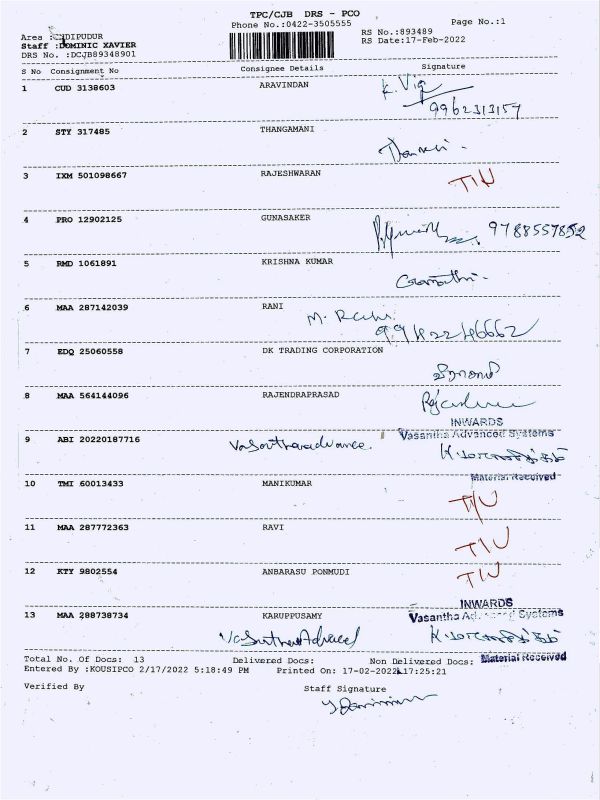 TPC/CJB DRS - PCO
Phone No.:0422-3505555 Page No.:1
Area :CHDIPUDUR RS No.:893489
Staff :DOMINIC XAVIER RS Date:17-Feb-2022
DRS No. :DCJB89348901
S No Consignment No Consignee Details Signature
1 CUD 3138603 ARAVINDAN
9962313157
2 STY 317485 THANGAMANI
3 IXM 501098667 RAJESHWARAN
4 PRO 12902125 GUNASAKER
9788557852
5 RMD 1061891 KRISHNA KUMAR
6 MAA 287142039 RANI
M. Rani
9942246662
7 EDQ 25060558 DK TRADING CORPORATION
8 MAA 564144096 RAJENDRAPRASAD
INWARDS
Vasantha Advanced Systems
9 ABI 20220187716
Material Received
10 TMI 60013433 MANIKUMAR
11 MAA 287772363 RAVI
12 KTY 9802554 ANBARASU PONMUDI
INWARDS
13 MAA 288738734 KARUPPUSAMY Vasantha Advanced Systems
Material Received
Total No. Of Docs: 13 Delivered Docs: Non Delivered Docs:
Entered By :KOUSIPCO 2/17/2022 5:18:49 PM Printed On: 17-02-2022 17:25:21
Verified By Staff Signature